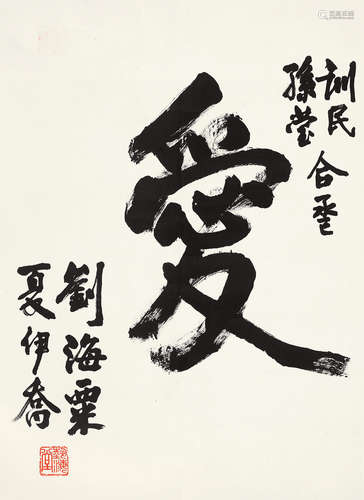 訓民
孫瑩
合璧
愛
劉海粟
夏伊喬